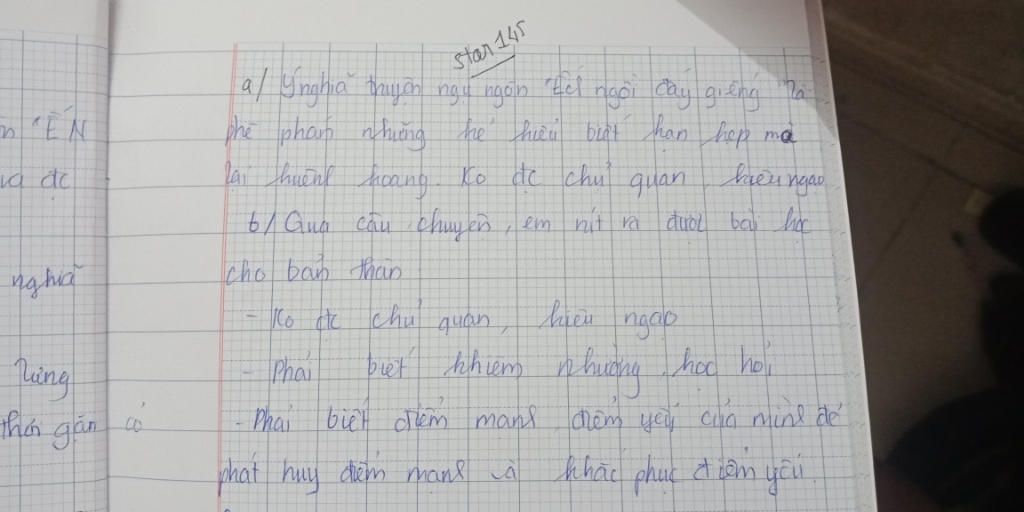 star 145
a/ Ý nghĩa truyện ngụ ngôn "Ếch ngồi đáy giếng" là
phê phán những kẻ hiểu biết hạn hẹp mà
lại huênh hoang. Ko đc chủ quan, kiêu ngạo
b/ Qua câu chuyện, em rút ra được bài học
cho bản thân
- Ko đc chủ quan, kiêu ngạo
- Phải biết khiêm nhường, học hỏi
- Phải biết điểm mạnh điểm yếu của mình để
phát huy điểm mạnh và khắc phục điểm yếu.
"ẾN
đc
nghĩa
gần có